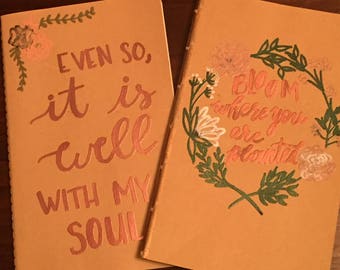 EVEN SO,
it is
well
WITH MY
SOUL
BLOOM
where you
are
planted